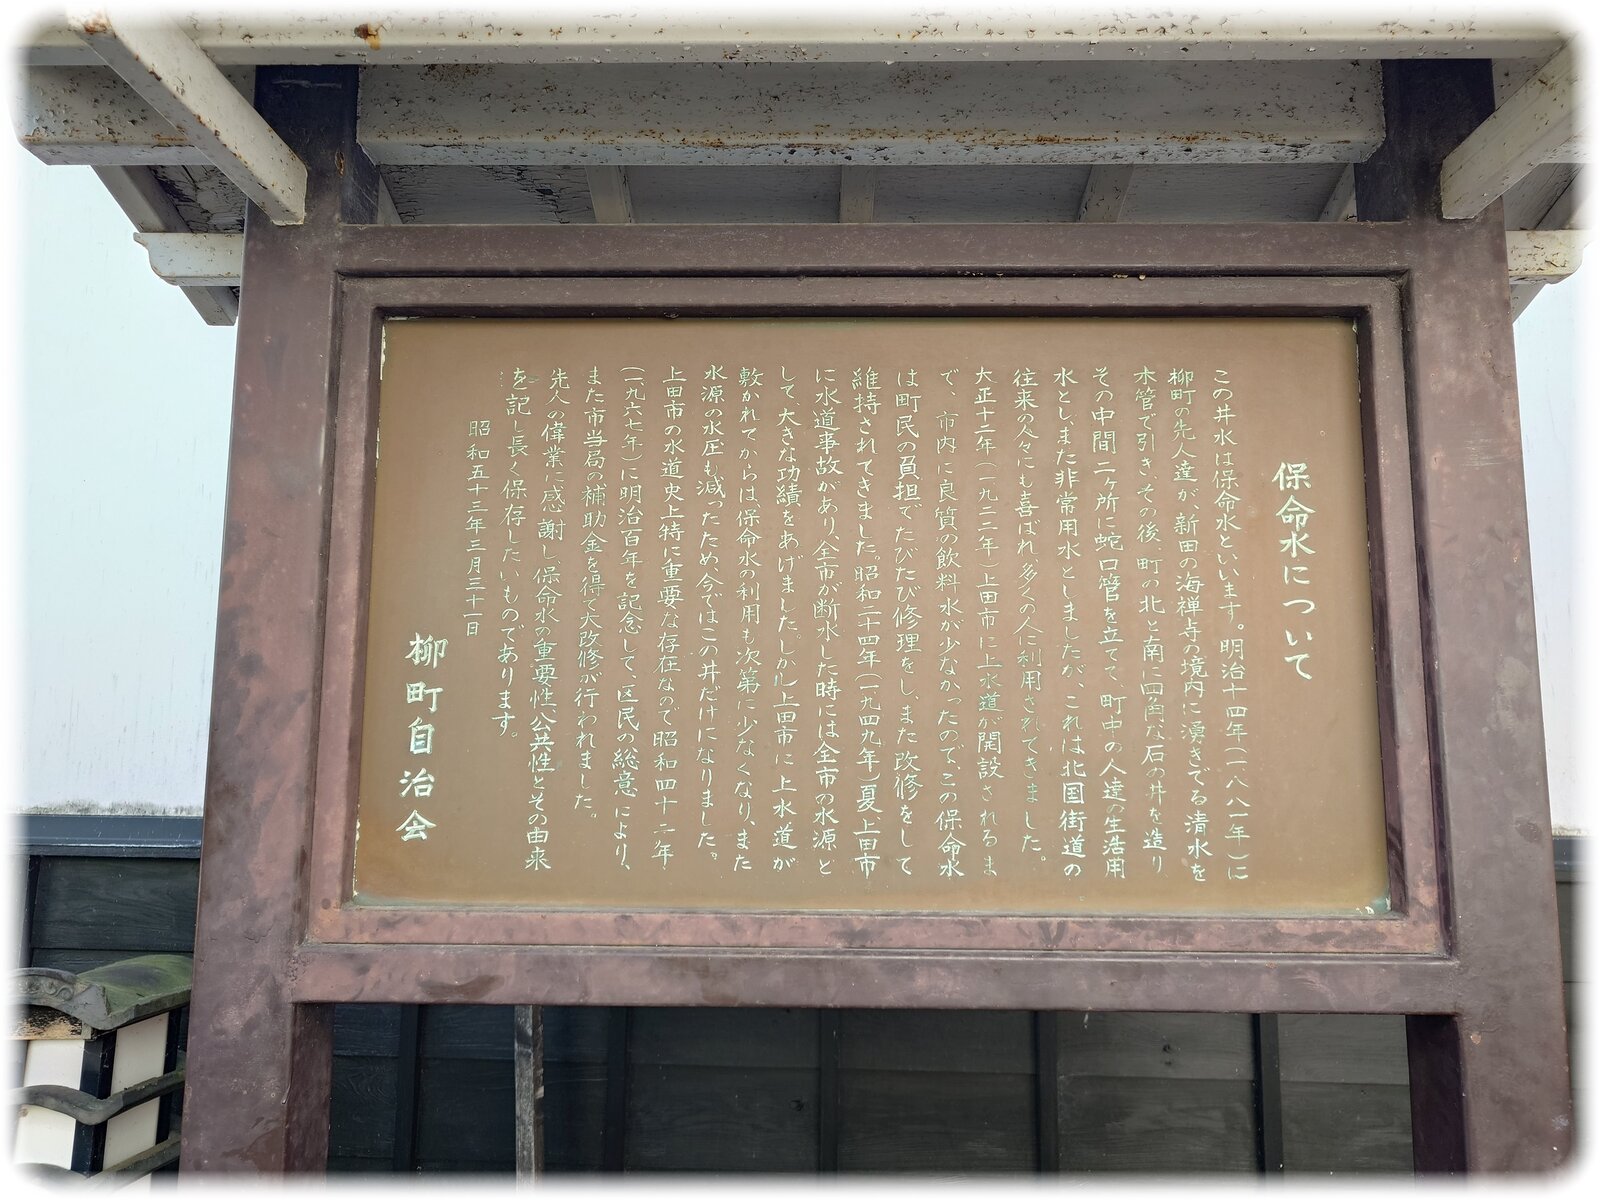 保命水について
この井水は保命水といいます。明治十四年(一八八一年)に
柳町の先人達が、新田の海禅寺の境内に湧きでる清水を
木管で引き、その後、町の北と南に四角な石の井を造り
その中間二ヶ所に蛇口管を立てて、町中の人達の生活用
水とし、また非常用水としましたが、これは北国街道の
往来の人々にも喜ばれ、多くの人に利用されてきました。
大正十二年(一九二二年)上田市に上水道が開設されるま
で、市内に良質の飲料水が少なかったので、この保命水
は町民の負担でたびたび修理をし、また改修をして
維持されてきました。昭和二十四年(一九四九年)夏上田市
に水道事故があり、全市が断水した時には全市の水源と
して大きな功績をあげました。しかし上田市に上水道が
敷かれてからは、保命水の利用も次第に少なくなり、また
水源の水圧も減ったため、今ではこの井だけになりました。
上田市の水道史上特に重要な存在なので昭和四十二年
(一九六七年)に明治百年を記念して、区民の総意により、
また市当局の補助金を得て大改修が行われました。
先人の偉業に感謝し、保命水の重要性、公共性とその由来
を記し長く保存したいものであります。
昭和五十三年三月三十一日
柳町自治会